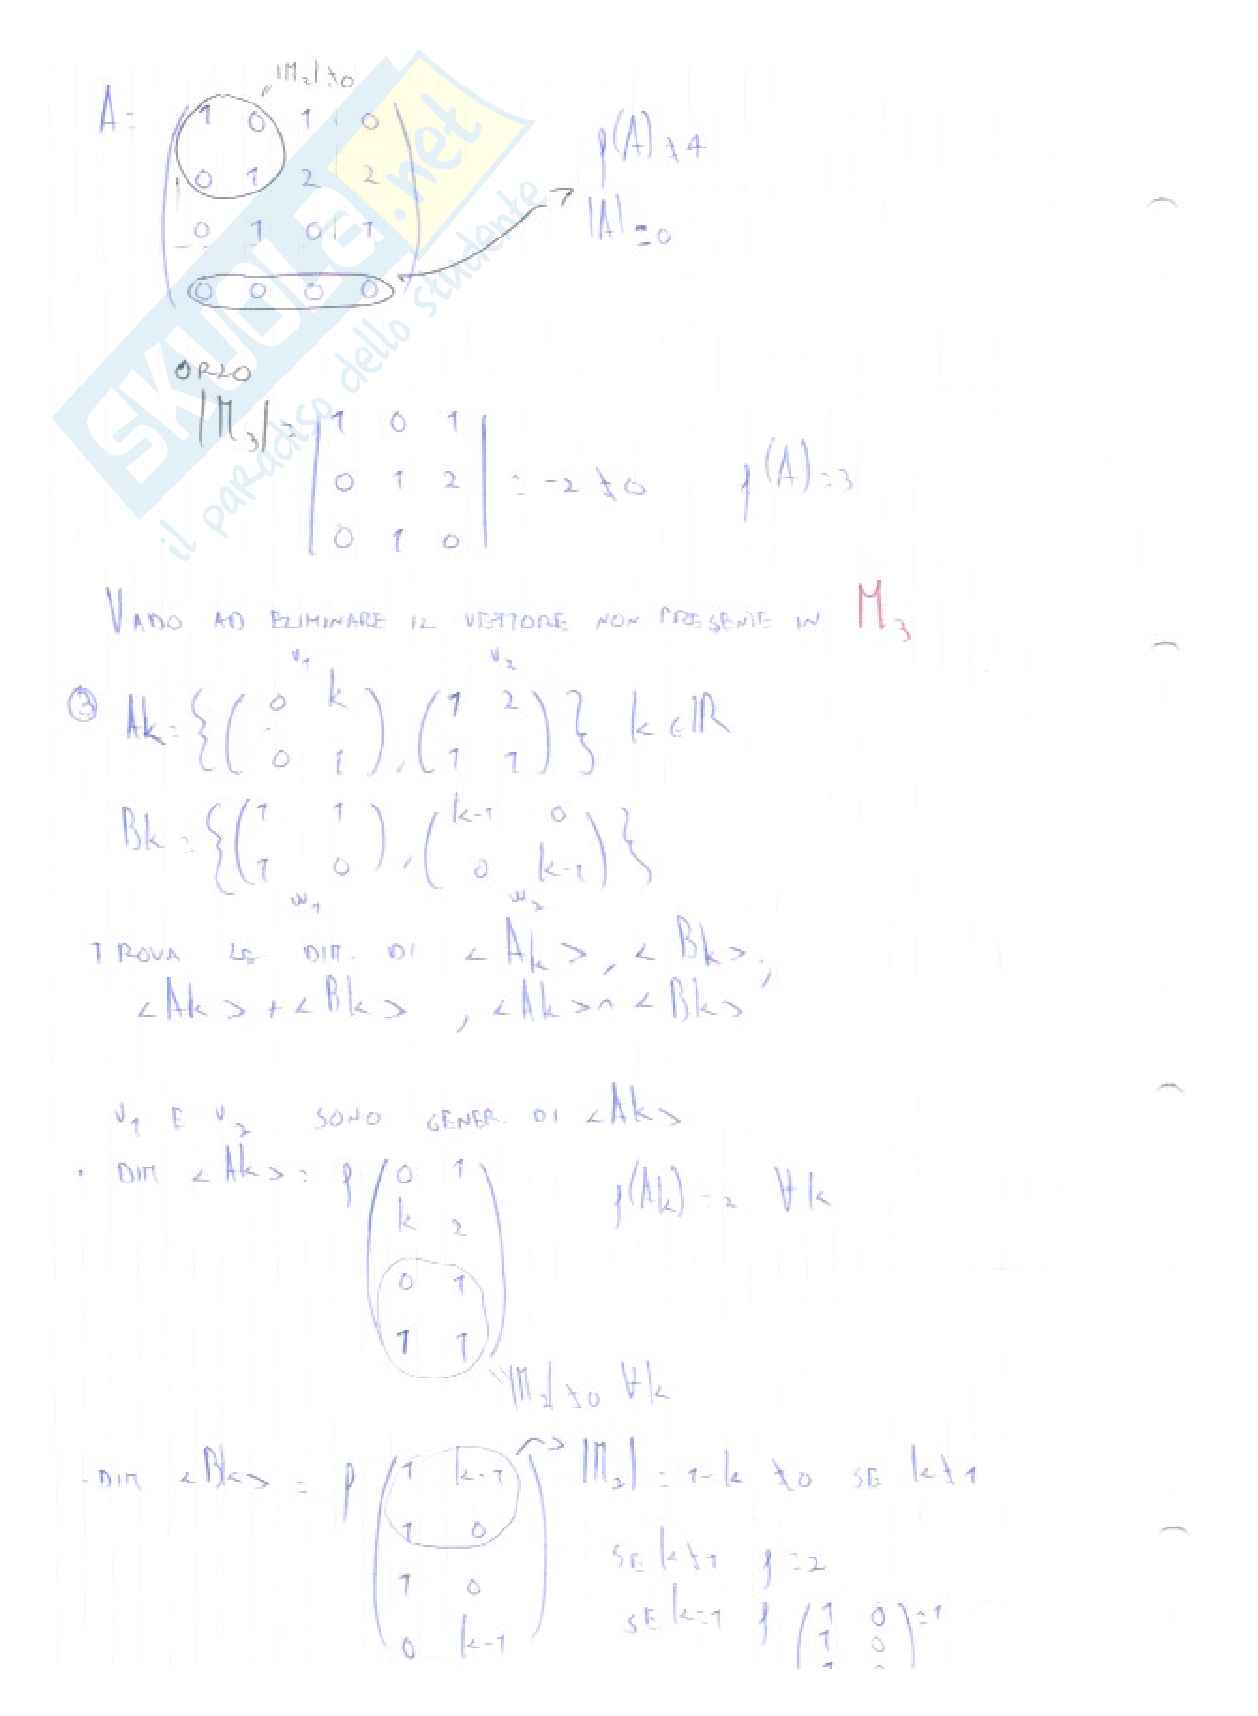 |M₂| ≠ 0
A = ( 1 0 1 0
0 1 2 2
0 1 0 1
0 0 0 0 )
ρ(A) ≠ 4
|A| = 0
SKUOLA.net
il paradiso dello studente
ORLO
|M₃| = | 1 0 1
0 1 2
0 1 0 | = -2 ≠ 0 ρ(A) = 3
VADO AD ELIMINARE IL VETTORE NON PRESENTE IN M₃
v₁ v₂
③ Ak = { ( 0 k
0 1 ) , ( 1 2
1 1 ) } k ∈ ℝ
Bk = { ( 1 1
1 0 ) , ( k-1 0
0 k-1 ) }
w₁ w₂
TROVA LE DIM. DI <Ak>, <Bk>,
<Ak> + <Bk>, <Ak> ∩ <Bk>
v₁ E v₂ SONO GENER. DI <Ak>
· DIM <Ak> = ρ ( 0 1
k 2
0 1
1 1 )
ρ(Ak) = 2 ∀k
|M₂| ≠ 0 ∀k
- DIM <Bk> = ρ ( 1 k-1
1 0
1 0
0 k-1 )
|M₂| = 1-k ≠ 0 SE k ≠ 1
SE k ≠ 1 ρ = 2
SE k = 1 ρ ( 1 0
1 0 ) = 1